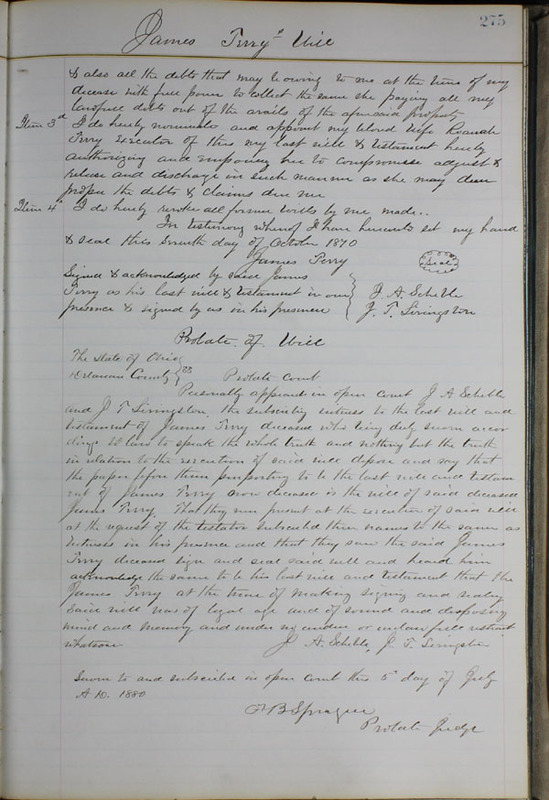 275
James Perrys Will
& also all the debts that may be owing to me at the time of my
decease with full power to collect the same she paying all my
lawfull debts out of the avails of the aforesaid property
Item 3d I do hereby nominate and appoint my beloved wife
Perry Executor of this my last will & testament hereby
authorizing and empowing her to compromise adjust &
release and discharge in such manner as she may deem
proper the debts & claims due me
Item 4 I do hereby revoke all former wills by me made..
In testimony whereof I have hereunto set my hand
& seal this day of October 1870
James Perry Seal
Signed & acknowledged by said James
Perry as his last will & testament in our
presence & signed by us in his presence
J. A. Scheble
J. T. Livingston
Probate of Will
The State of Ohio
Delaware County ss Probate Court
Personally appeared in open court J A Scheble
and J T Livingston, the subscribing witness to the last will and
testament of James Perry deceased who being duly sworn accor
ding to law to speak the whole truth and nothing but the truth
in relation to the execution of said will depose and say that
the paper before them purporting to be the last will and testam
ent of James Perry now deceased is the will of said deceased
James Perry. That they were present at the execution of said will
at the request of the testator subscribed their names to the same as
witnesses in his presence and that they saw the said James
Perry deceased sign and seal said will and heard him
acknowledge the same to be his last will and testament that the
James Perry at the time of making signing and sealing
said will was of legal age and of sound and disposing
mind and memory and under no undue or unlawfull restraint
whatsoever J A Scheble, J. T. Livingston
Sworn to and subscribed in open court this 5 day of July
A D. 1880
B Sprague
Probate Judge